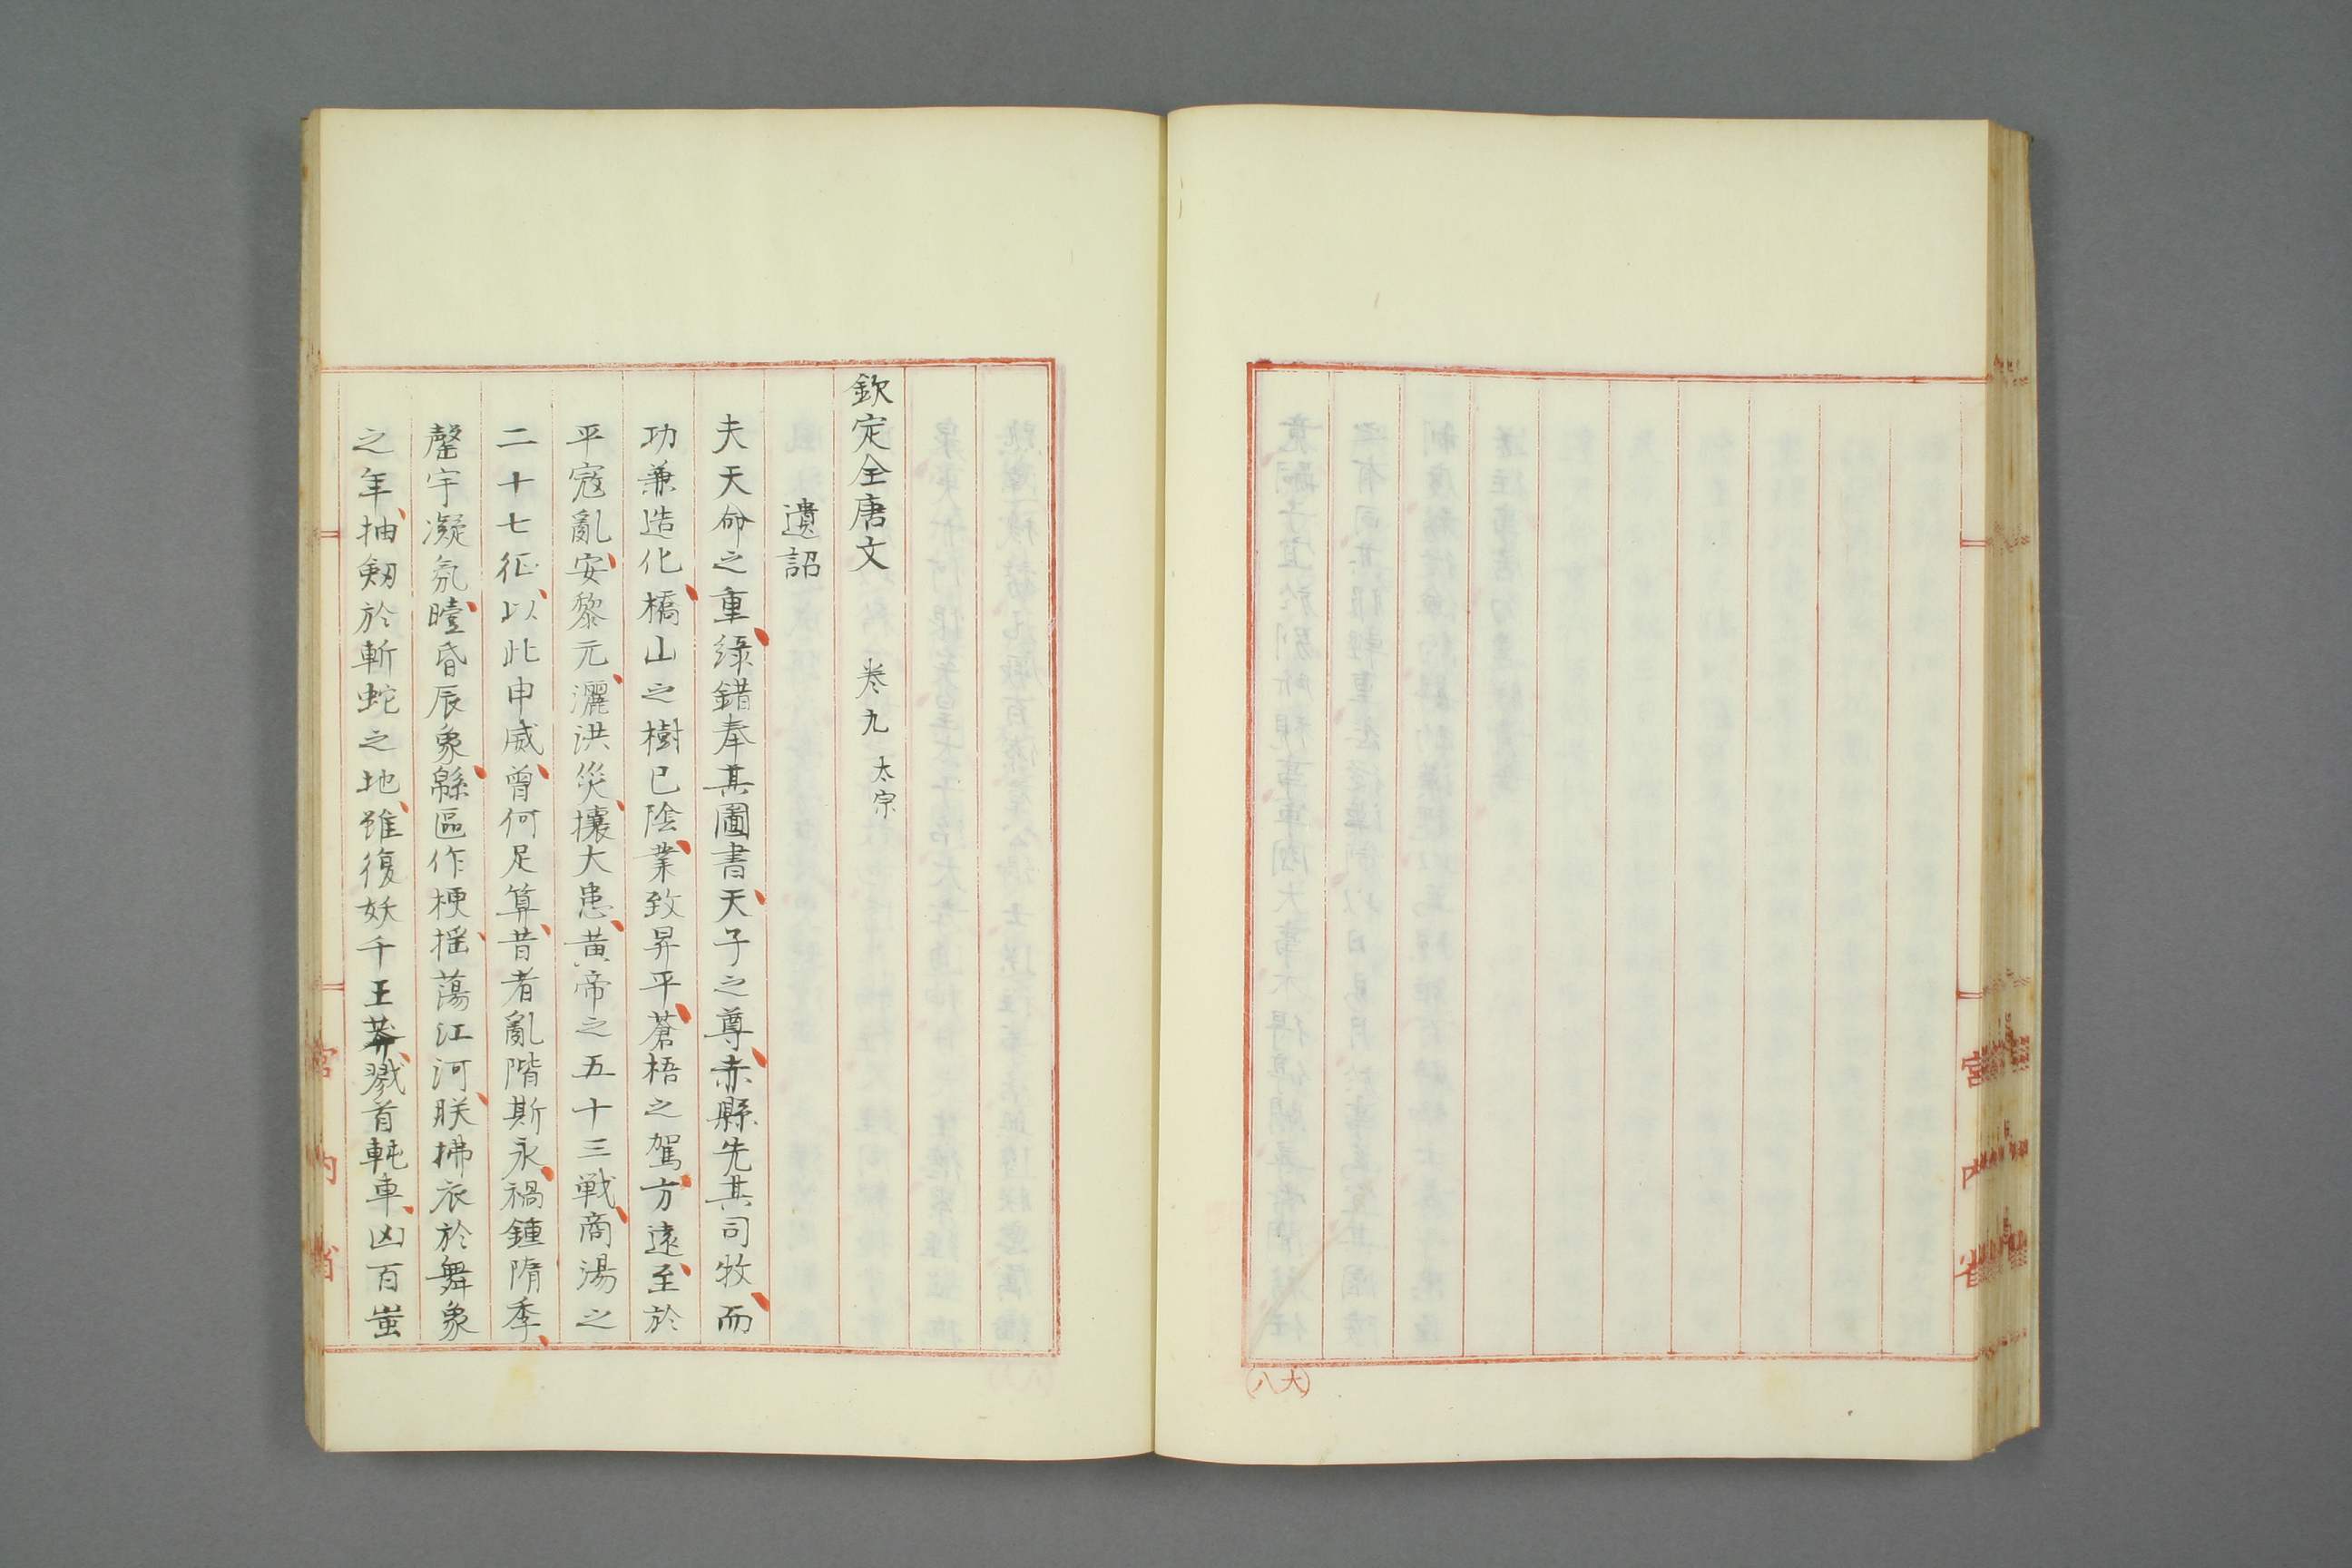 宮内省
大八
欽定全唐文　卷九　太宗
遺詔
夫天命之重綠錯奉其圖書天子之尊赤縣先其司牧而
功兼造化橋山之樹已陰業致昇平蒼梧之駕方遠至於
平寇亂安黎元灑洪災攘大患黃帝之五十三戦商湯之
二十七征以此申威曾何足算昔者亂階斯永禍鍾隋季
罄宇凝氛曀昏辰象緜區作梗揺蕩江河朕拂衣於舞象
之年抽劔於斬蛇之地雖復妖千王莽戮首軘車凶百蚩
宮内省